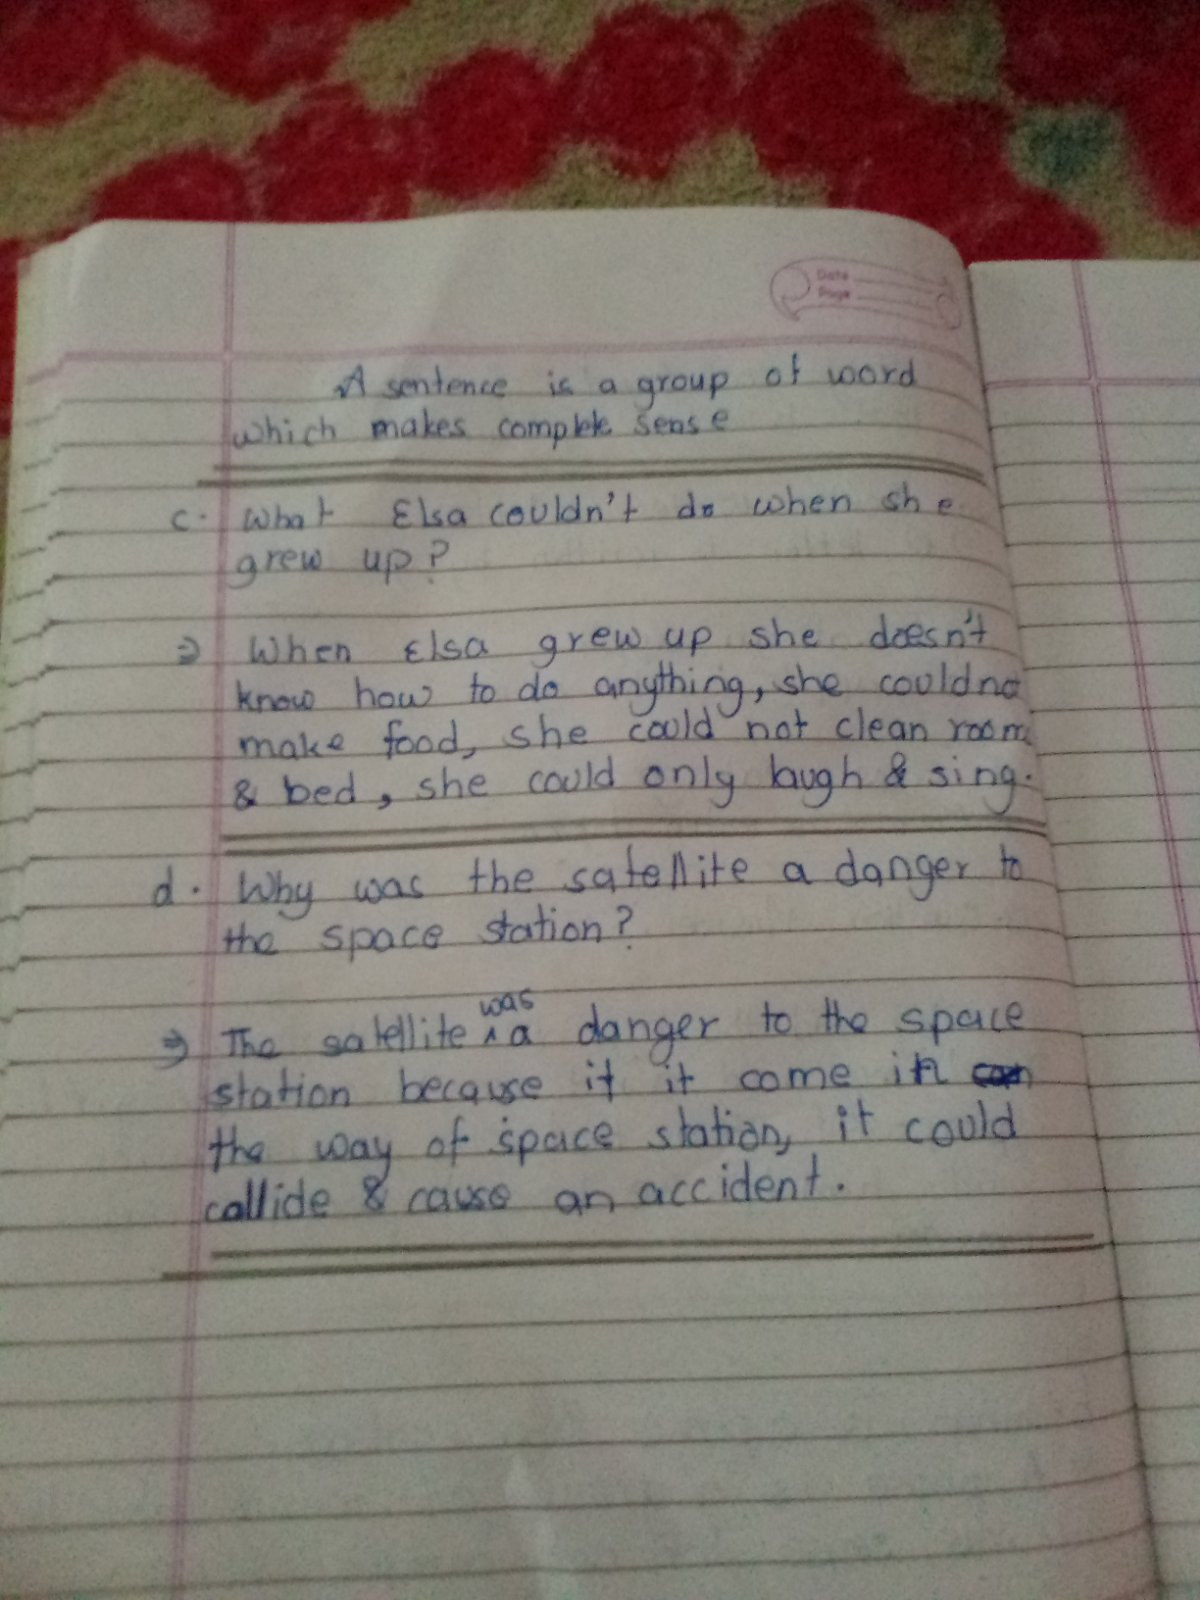 Date
Page
A sentence is a group of word
which makes complete sense
c. What Elsa couldn't do when she
grew up?
⇒ When Elsa grew up she doesn't
know how to do anything, she could not
make food, she could not clean room
& bed, she could only laugh & sing.
d. Why was the satellite a danger to
the space station?
⇒ The satellite ^was a danger to the space
station because if it come in
the way of space station, it could
collide & cause an accident.